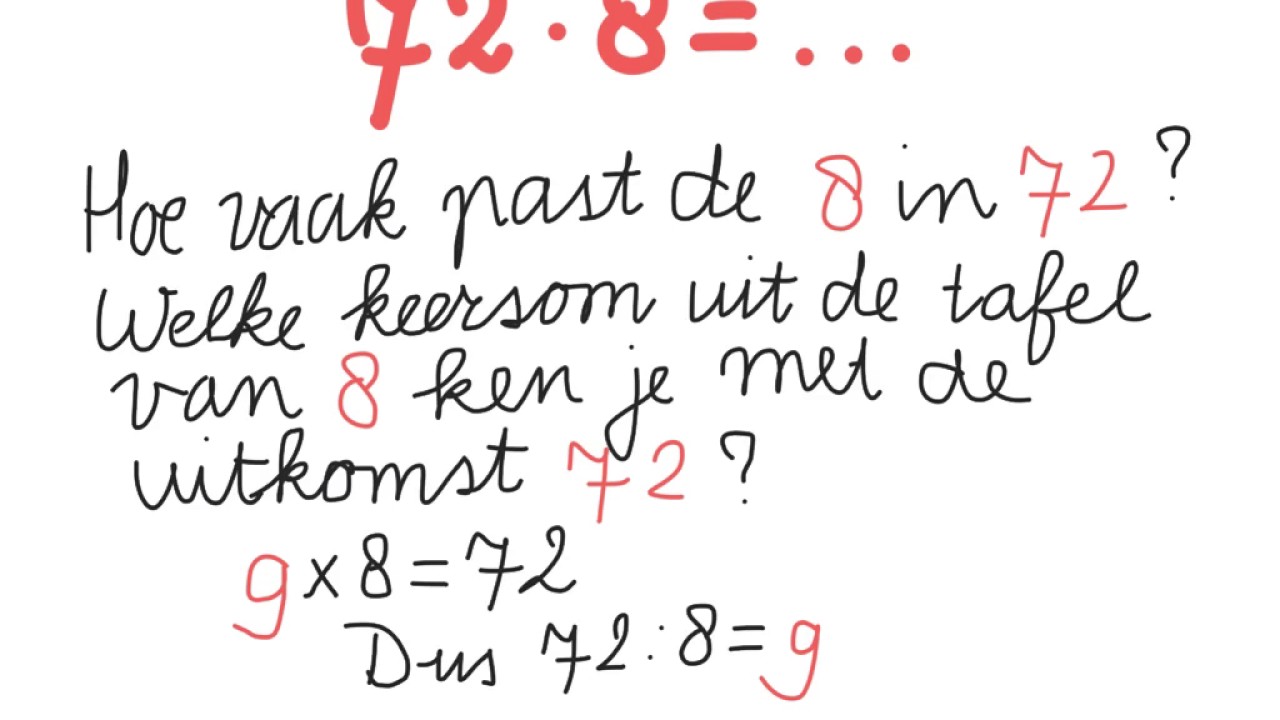 72 : 8 = ...
Hoe vaak past de 8 in 72 ?
Welke keersom uit de tafel
van 8 ken je met de
uitkomst 72 ?
9 x 8 = 72
Dus 72 : 8 = 9